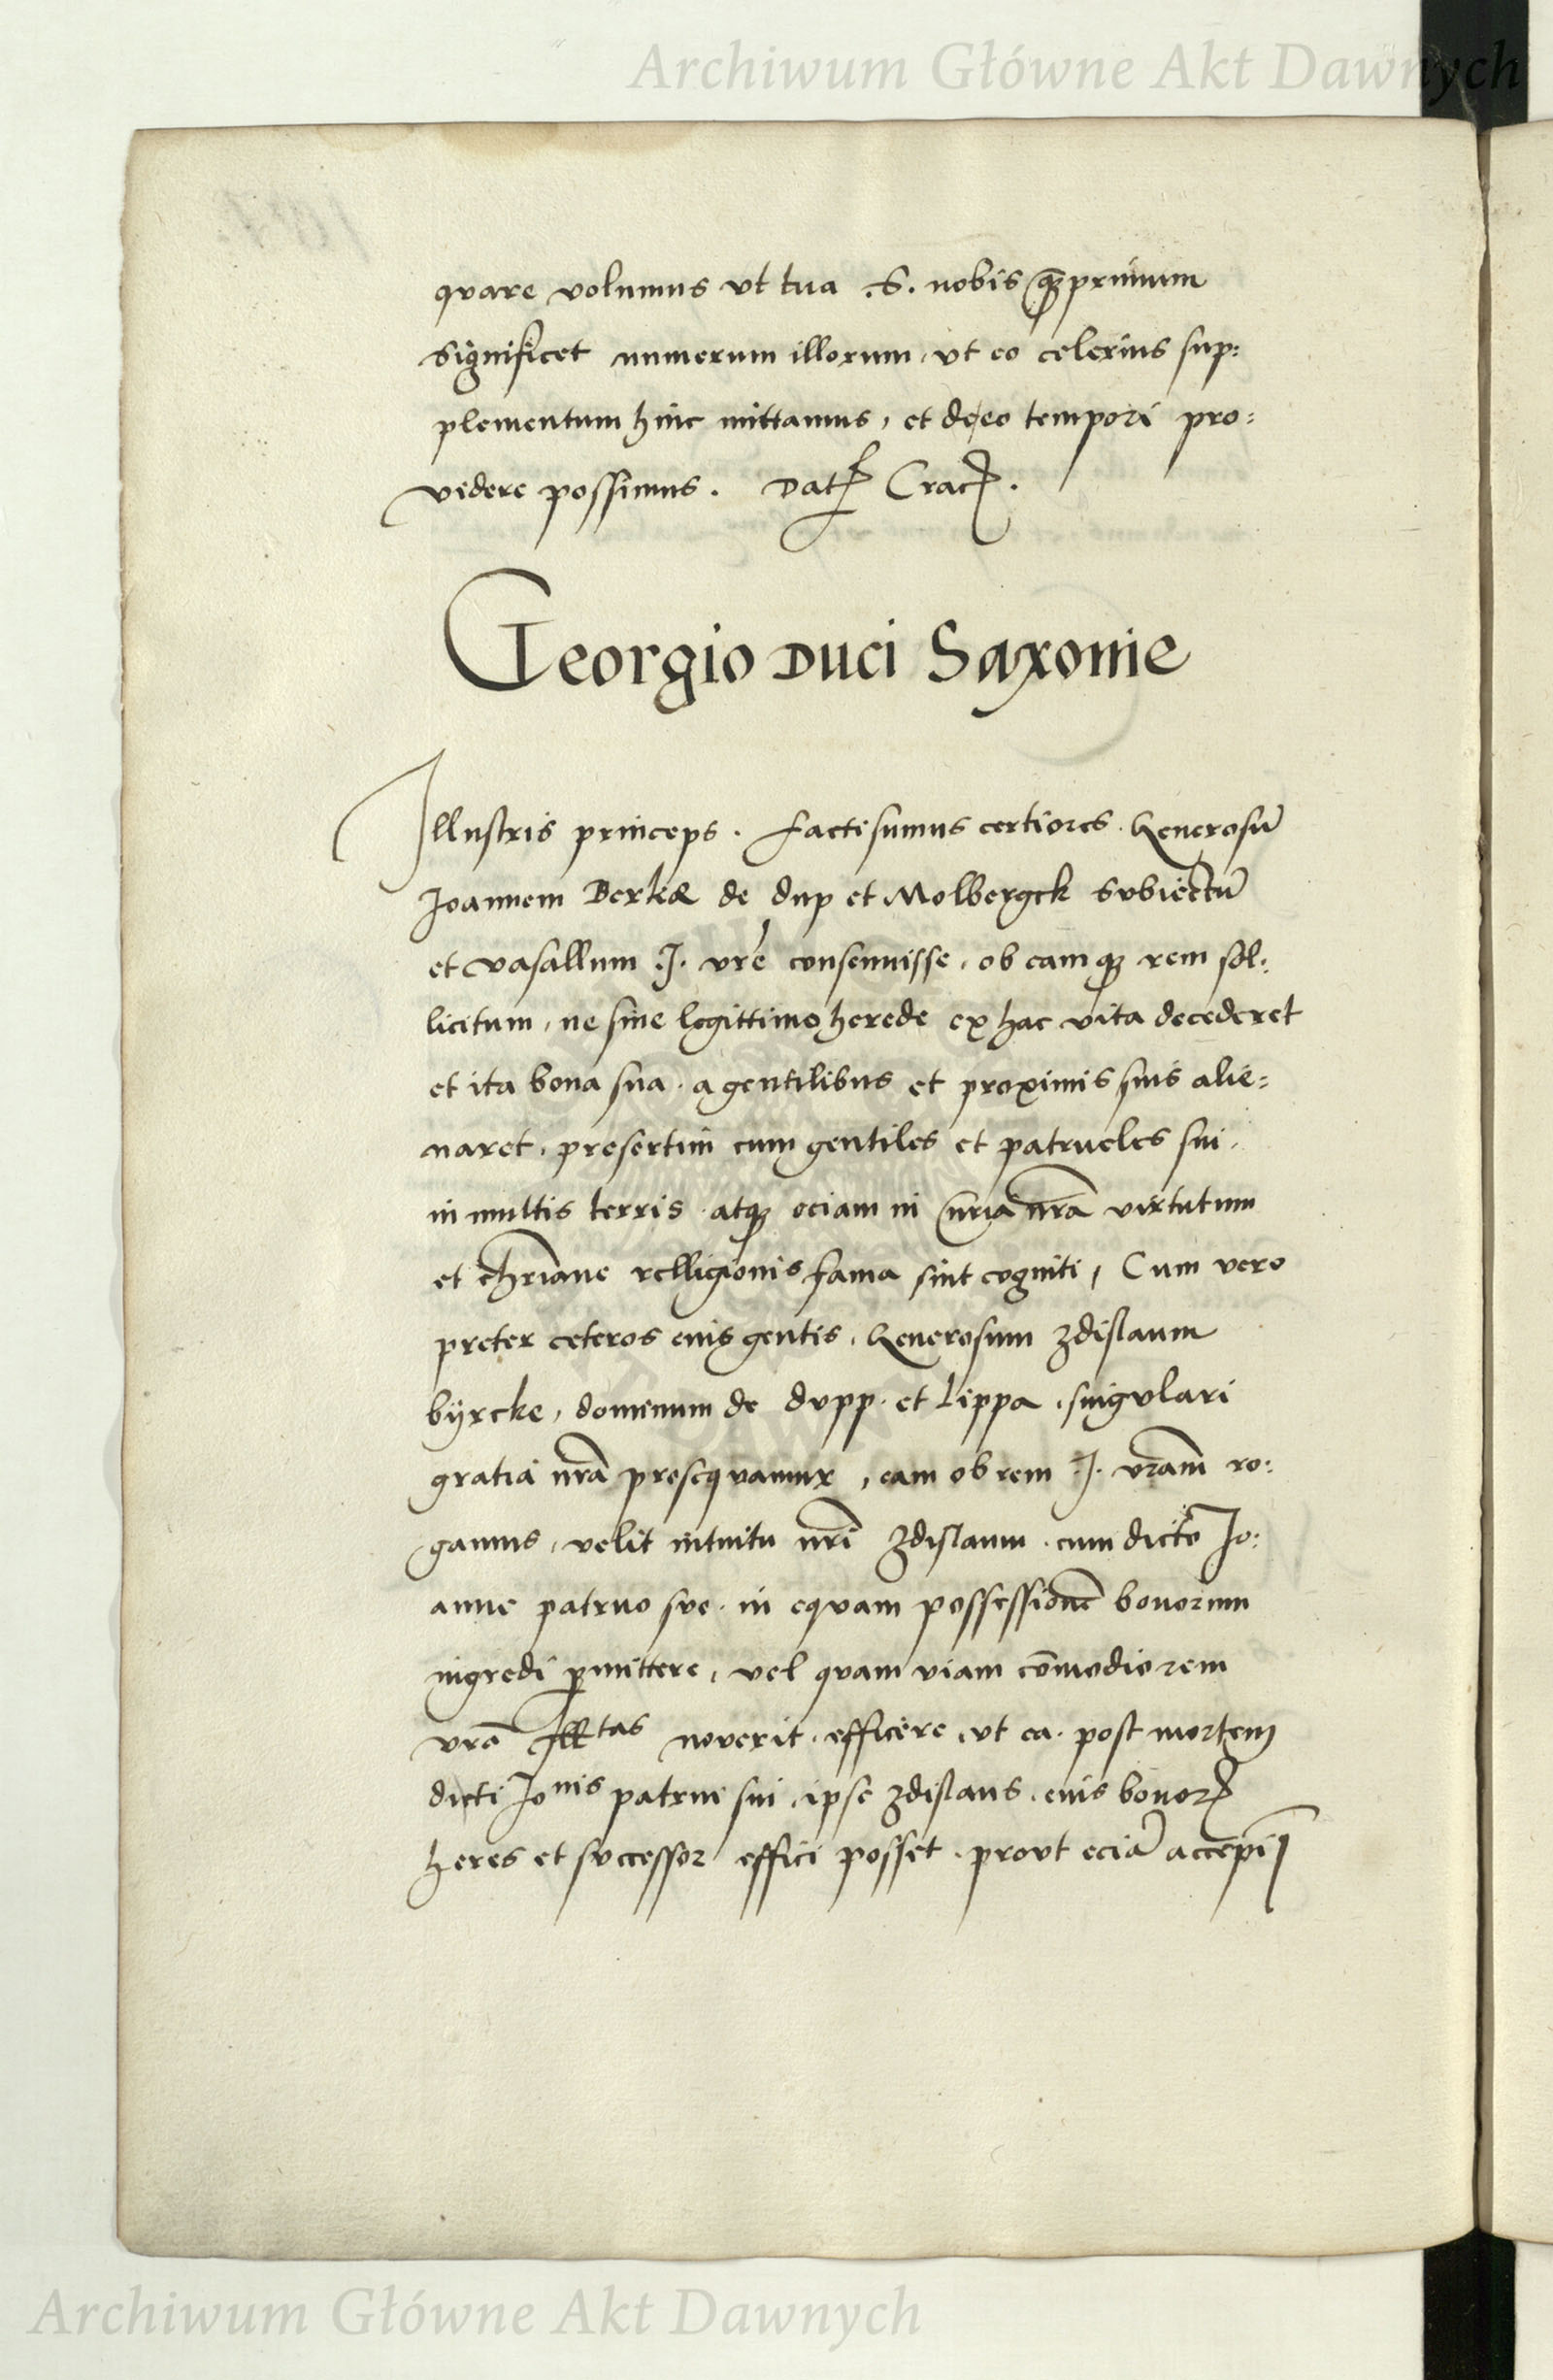 Archiwum Główne Akt Dawnych
quare volumus vt tua .S. nobis q̃primum
significet numerum illorum, vt eo celerius sup:
plementum hinc mittamus, et de eo tempori pro:
videre possimus. Dat Crac.
Georgio Duci Saxonie
Illustris princeps. facti sumus certiores. Generosũ
Joannem Berkæ de dup et Molbergck Subiectũ
et vasallum .J. vrẽ consenuisse, ob eamq; rem sol:
licitum, ne sine legittimo herede ex hac vita decederet
et ita bona sua. a gentilibus et proximis suis alie=
naret, presertim cum gentiles et patrueles sui,
in multis terris. atq; eciam in Curia nr̃a virtutum
et chr̃iane relligionis fama sint cogniti, Cum vero
preter ceteros eius gentis, Generosum Zdislaum
bÿrcke, dominum de dupp. et Lippa, singulari
gratia nr̃a prosequamur, eam ob rem .J. vr̃am ro:
gamus, velit intuitu nr̃i Zdislaum. cum dicto Jo:
anne patruo suo. in equam possessionẽ bonorum
ingredi pmittere, vel quam viam cõmodiorem
vrã Ill tas noverit. efficere, vt ea. post mortem
dicti Jo nis patrui sui, ipse Zdislaus, eius bonor
heres et successor effici posset. prout eciã accepi
Archiwum Główne Akt Dawnych